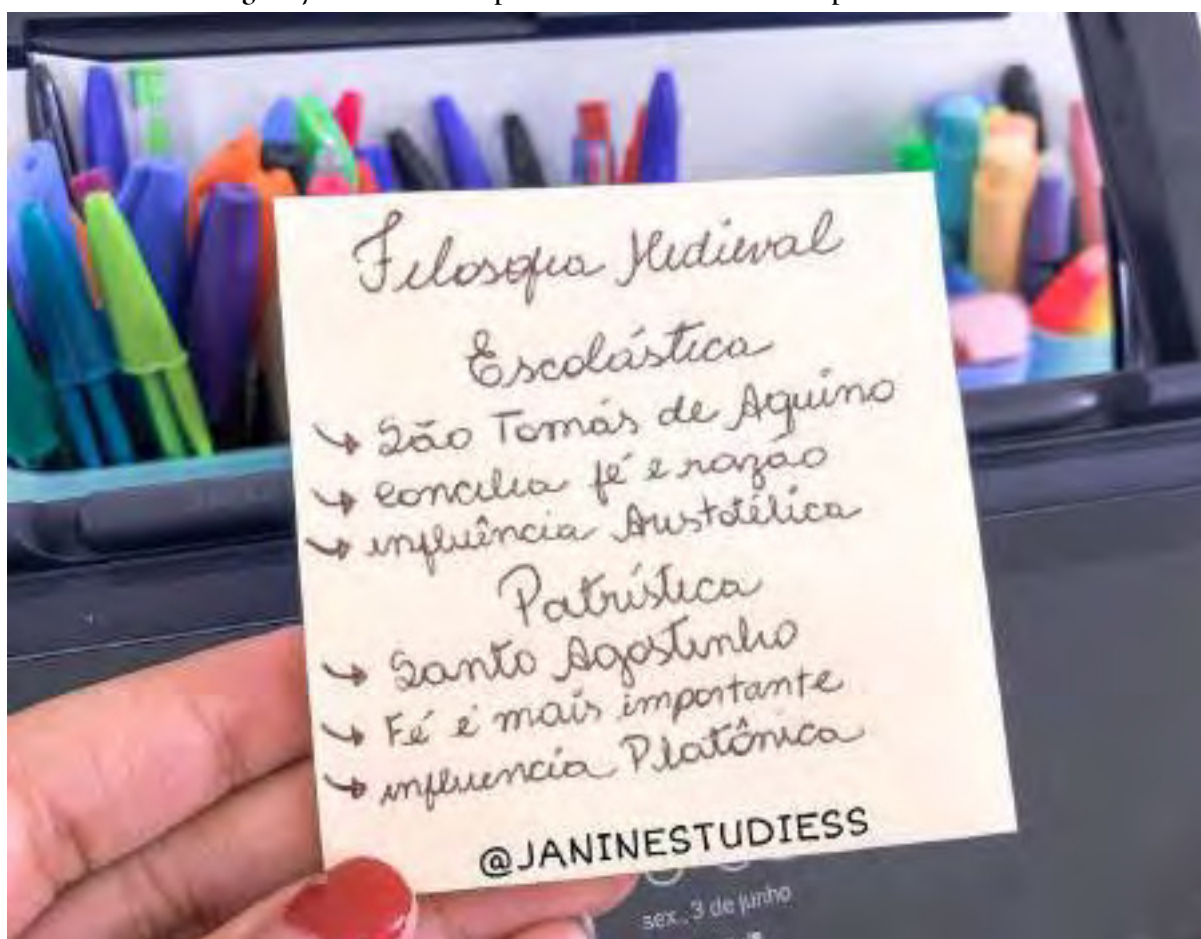 Filosofia Medieval
Escolástica
→ São Tomás de Aquino
→ concilia fé e razão
→ influência Aristotélica
Patrística
→ Santo Agostinho
→ Fé é mais importante
→ influencia Platônica
@JANINESTUDIESS
sex., 3 de junho